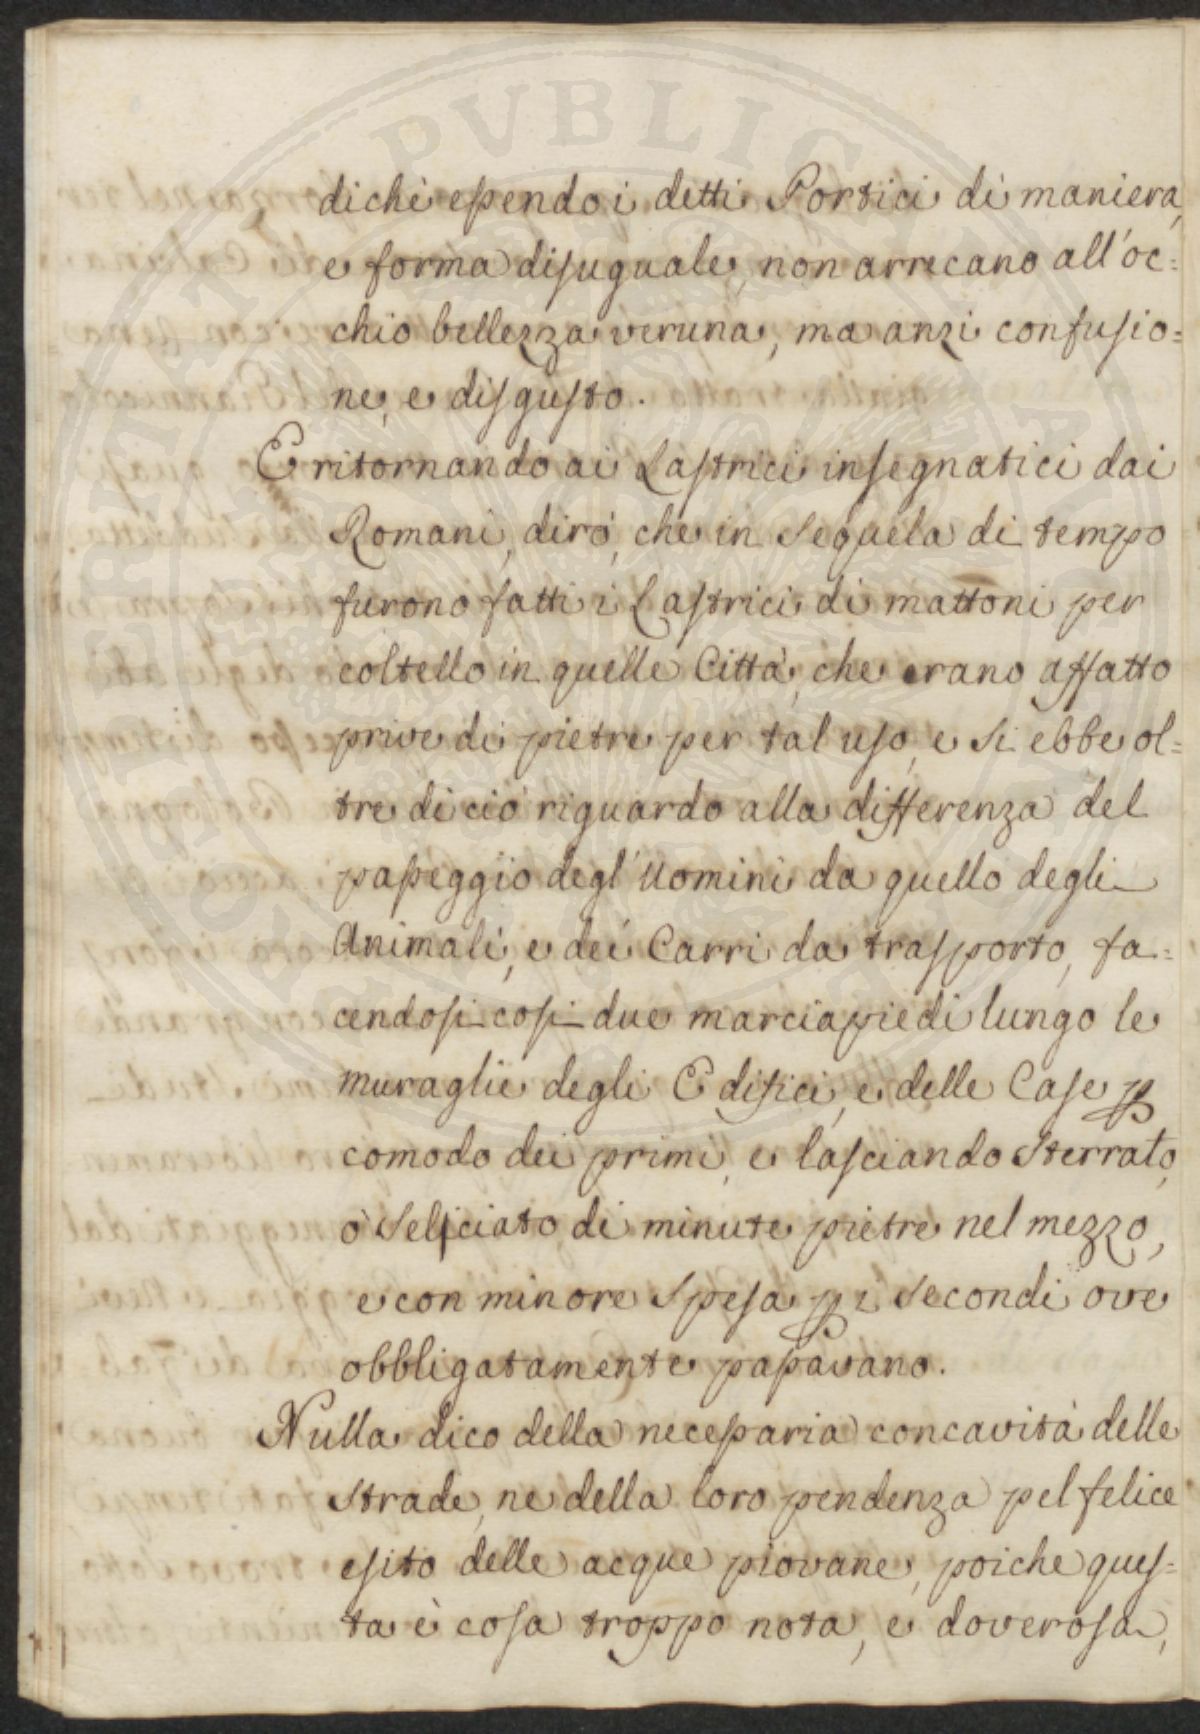 dichè essendo i detti Portici di maniera,
e forma disuguale, non arrecano all'oc=
chio bellezza veruna, ma anzi confusio=
ne, e disgusto.
E ritornando ai Lastrici insegnatici dai
Romani, dirò, che in sequela di tempo
furono fatti i Lastrici di mattoni per
coltello in quelle Città, che erano affatto
prive di pietre per tal uso, e si ebbe ol=
tre di ciò riguardo alla differenza del
passeggio degl'Uomini da quello degli
Animali, e dei Carri da trasporto, fa=
cendosi così due marciapiedi lungo le
muraglie degli Edifici, e delle Case p
comodo dei primi, e lasciando Sterrato,
ò Seliciato di minute pietre nel mezzo,
e con minore Spesa p i Secondi ove
obbligatamente passavano.
Nulla dico della necessaria concavità delle
Strade, ne della loro pendenza pel felice
esito delle acque piovane, poiche ques=
ta è cosa troppo nota, e doverosa,